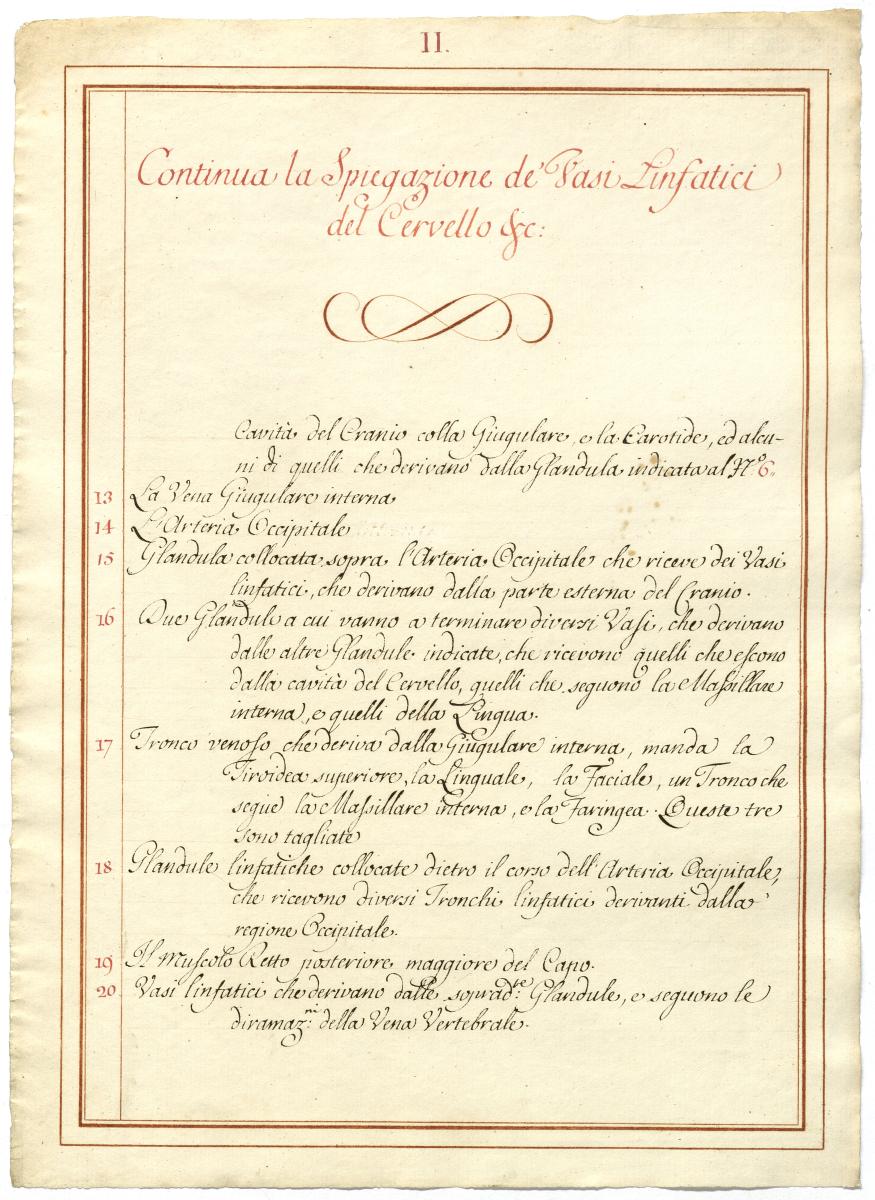 II.
Continua la Spiegazione de' Vasi Linfatici
del Cervello &c:
Cavità del Cranio colla Giugulare, e la Carotide, ed alcu-
ni di quelli che derivano dalla Glandula indicata al N.º 6.
13 La Vena Giugulare interna
14 L'Arteria Occipitale
15 Glandula collocata sopra l'Arteria Occipitale che riceve dei Vasi
linfatici, che derivano dalla parte esterna del Cranio.
16 Due Glandule a cui vanno a terminare diversi Vasi, che derivano
dalle altre Glandule indicate, che ricevono quelli che escono
dalla cavità del Cervello, quelli che seguono la Massillare
interna, e quelli della Lingua.
17 Tronco venoso che deriva dalla Giugulare interna, manda la
Tiroidea superiore, la Linguale, la Faciale, un Tronco che
segue la Massillare interna, e la Faringea. Queste tre
sono tagliate
18 Glandule linfatiche collocate dietro il corso dell'Arteria Occipitale,
che ricevono diversi Tronchi linfatici derivanti dalla
regione Occipitale.
19 Il Muscolo Retto posteriore maggiore del Capo.
20 Vasi linfatici che derivano dalle soprad.te Glandule, e seguono le
diramaz.ni della Vena Vertebrale.